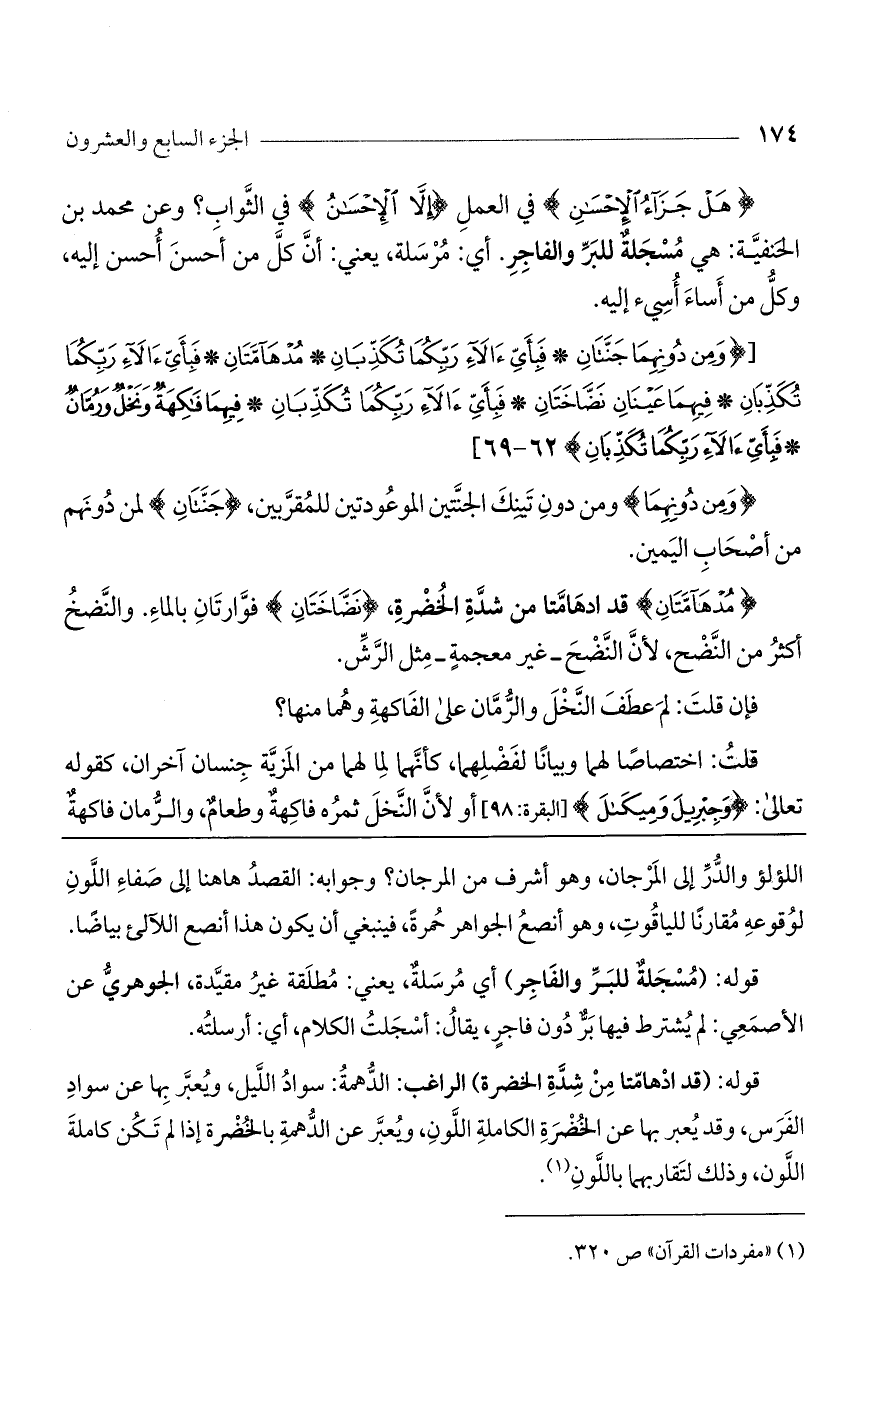 ١٧٤ ــــــــــــــــــــ الجزء السابع والعشرون
﴿هَلْ جَزَآءُ ٱلْإِحْسَٰنِ﴾ في العملِ ﴿إِلَّا ٱلْإِحْسَٰنُ﴾ في الثَّوابِ؟ وعن محمد بن
الحَنفيَّة: هي مُسْجَلةٌ للبَرِّ والفاجِرِ. أي: مُرْسَلة، يعني: أنَّ كلَّ من أحسنَ أُحسن إليه،
وكلُّ من أَساءَ أُسِيء إليه.
[﴿وَمِن دُونِهِمَا جَنَّتَانِ * فَبِأَيِّ ءَالَآءِ رَبِّكُمَا تُكَذِّبَانِ * مُدْهَآمَّتَانِ * فَبِأَيِّ ءَالَآءِ رَبِّكُمَا
تُكَذِّبَانِ * فِيهِمَا عَيْنَانِ نَضَّاخَتَانِ * فَبِأَيِّ ءَالَآءِ رَبِّكُمَا تُكَذِّبَانِ * فِيهِمَا فَٰكِهَةٌ وَنَخْلٌ وَرُمَّانٌ
* فَبِأَيِّ ءَالَآءِ رَبِّكُمَا تُكَذِّبَانِ﴾ ٦٢-٦٩]
﴿وَمِن دُونِهِمَا﴾ ومن دونِ تَينِكَ الجنَّتين الموعُودتين للمُقرَّبين، ﴿جَنَّتَانِ﴾ لمن دُونَهم
من أصْحَابِ اليَمين.
﴿مُدْهَآمَّتَانِ﴾ قد ادهَامَّتا من شدَّةِ الخُضْرةِ، ﴿نَضَّاخَتَانِ﴾ فوَّارتَانِ بالماءِ. والنَّضخُ
أكثرُ من النَّضْح، لأنَّ النَّضْحَ ـ غير معجمةٍ ـ مِثل الرَّشِّ.
فإن قلتَ: لم عطَفَ النَّخْلَ والرُّمَّان على الفَاكهةِ وهُما منها؟
قلتُ: اختصاصًا لهما وبيانًا لفَضْلِهما، كأنَّهما لِما لهما من المَزيَّة جِنسان آخران، كقوله
تعالى: ﴿وَجِبْرِيلَ وَمِيكَىٰلَ﴾ [البقرة: ٩٨] أو لأنَّ النَّخلَ ثمرُه فاكِهةٌ وطعامٌ، والرُّمان فاكهةٌ
اللؤلؤ والدُّرِّ إلى المَرْجان، وهو أشرف من المرجان؟ وجوابه: القصدُ هاهنا إلى صَفاءِ اللَّونِ
لوُقوعهِ مُقارنًا للياقُوتِ، وهو أنصعُ الجواهر حُمرةً، فينبغي أن يكون هذا أنصع اللآلئ بياضًا.
قوله: (مُسْجَلةٌ للبَرِّ والفَاجِر) أي مُرسَلةٌ، يعني: مُطلَقة غيرُ مقيَّدة، الجوهريُّ عن
الأصمَعِي: لم يُشترط فيها بَرٌّ دُون فاجرٍ، يقالُ: أسْجَلتُ الكلام، أي: أرسلتُه.
قوله: (قد ادْهامّتا مِنْ شِدَّةِ الخضرة) الراغب: الدُّهمةُ: سوادُ اللَّيل، ويُعبَّر بِها عن سوادِ
الفَرَس، وقد يُعبر بها عن الخُضْرَةِ الكاملةِ اللَّونِ، ويُعبَّر عن الدُّهمةِ بالخُضْرة إذا لم تَكُن كاملةَ
اللَّون، وذلك لتَقاربهما باللَّونِ(١).
(١) «مفردات القرآن» ص ٣٢٠.